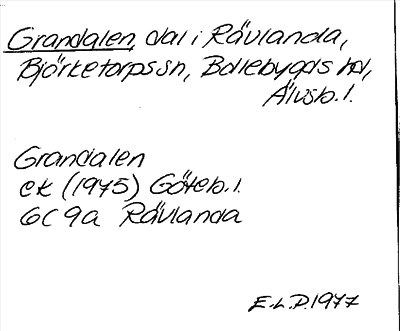 Grandalen, dal i Rävlanda,
Björketorps sn, Bollebygds hd,
Älvsb. l.
Grandalen
ek (1975) Göteb. l.
6C 9a Rävlanda
E.L.P. 1977